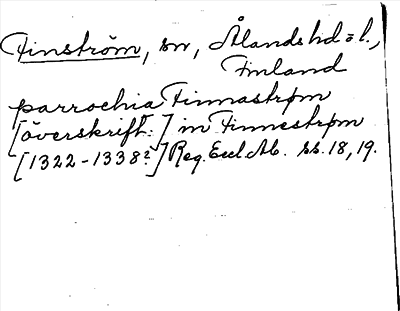 Finström, sn, Ålands hd = l.,
Finland
parrochia Finnastrøm
[överskrift:] in Finnestrøm
[1322-1338?] Reg. Eccl. Ab. ss. 18, 19.